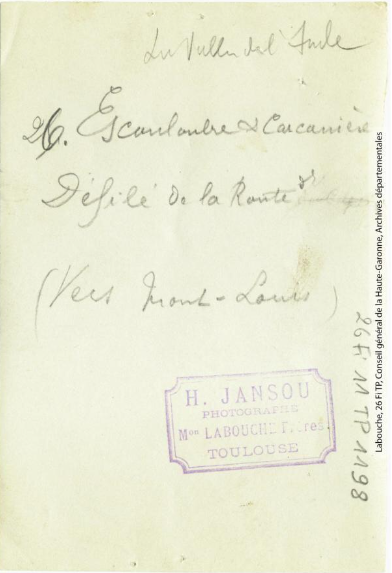 La Vallée de l'Aude
26. Escouloubre & Carcanière
Défilé de la Route
(Vers Mont-Louis)
H. JANSOU
PHOTOGRAPHE
Mon LABOUCHE F.res
TOULOUSE
26 Fi 11 TP 1198
Labouche, 26 Fi TP, Conseil général de la Haute-Garonne, Archives départementales